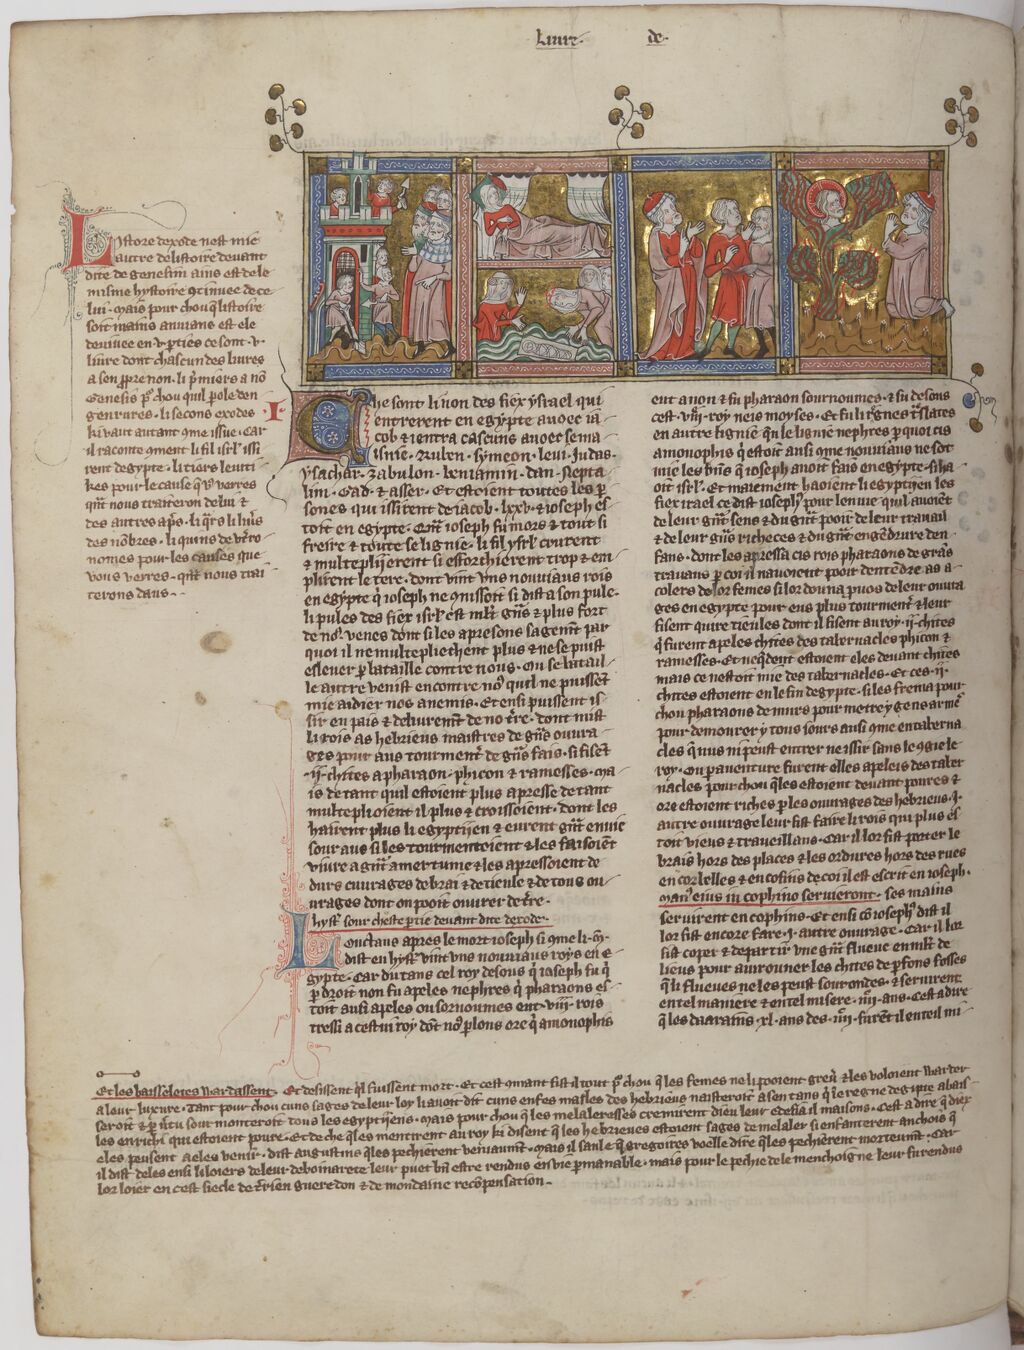 Liure · de ·
Listore dexode nest mie
autre de listoire deuant
dite de genesim ains est de le
misme hystoire ꝯtinuee de ce
lui · mais pour chou q listoire
soit mains anuians est ele
deuisee en · v · pties ce sont · v ·
liure dont chascun des liures
a sen ppre non · li pmiers a nõ
Genesis p chou quil pole den
genrures · li secons exodes
ki vaut autant ꝯme issue · Car
il raconte ꝯment li fil isrl issi
rent degypte · li tiers leuiti
kes pour le cause q vo verres
qñt nous traiteron de lui ⁊
des autres aps · li qrs li liurs
des nõbres · li quins deutro
nomes pour les causes que
vous verres · qñt nous trai
terons dans · -
· I ·
Che sont li non des fiex ysrael qui
entrerent en egypte auoec ia
cob ⁊ i entra cascuns auoec se ma
isnie · Ruben · symeon · leui · Judas ·
ysachar · zabulon · beniamin · dan · Nepta
lim · Gad · ⁊ asser · Et estoient toutes les p
sones qui issirent de iacob · lxxv · ⁊ ioseph es
toit en egypte · Qñt ioseph fu mors ⁊ tout si
freire ⁊ toute se lignie · li fil ysrl crurent
⁊ multepliierent si esforchierent trop ⁊ em
plirent le tere · dont vint vns nouuiaus rois
en egypte q ioseph ne ꝯnissoit si dist a son pule ·
li pules des fiex isrl est mlt gñs ⁊ plus fort
de no · venes dont si les apresons sagemt par
quoi il ne multepliechent plus ⁊ ne se puist
esleuer p bataille contre nous · Ou se batail
le autre venist encontre no quil ne puissẽt
mie aidier nos anemis · Et ensi puissent is
sir en pais ⁊ deliuremt de no tre · dont mist
li rois as hebrieus maistres de gñs ouura
ges pour aus tourmenter de gñs fais · si fisẽt
· ij · chites a pharaon · phicon ⁊ ramesses · ma
is de tant quil estoient plus apresse de tant
multeplioient il plus ⁊ croissoient · dont les
hairent plus li egyptijen ⁊ eurent gñt enuie
sour aus si les tourmentoient ⁊ les faisoiẽt
viure a gñt amertume ⁊ les apressoient de
durs ouurages de brai ⁊ de tieule ⁊ de tous ou
urages dont on pooit ouurer de tre ·
hyst sour cheste ptie deuant dite dexode ·
Lonctans apres le mort ioseph si ꝯme li · m ·
dist en hyst vint vns nouuiaus roys en e
gypte · Car du tans cel roy desous q ioseph fu q
p droit non fu apeles nephres q pharaons es
toit ausi apeles ou sornoumes ent · viij · rois
tressi a cestui roy dõt no plons ore q amonophis
eut a non ⁊ fu pharaon sournoumes · ⁊ fu desous
cest · viij · roy neis moyses · Et fu li rgnes trslates
en autre lignie qñ le lignie nephres p quoi cis
amonophis q estoit ausi ꝯme nouuiaus ne sot
mie les biẽs q ioseph auoit fais en egypte · si ha
oit isrl · Et maiement haoient li egyptijen les
fiex israel ce dist ioseph pour lenuie quil auoiẽt
de leur gñt sens ⁊ du gñt pooir de leur trauail
⁊ de leur gñs richeces ⁊ du gñt engẽdrure den
fans · dont les apressa cis rois pharaons de grãs
trauaus p coi il nauoient pooit dentẽdre as a
colers de lor femes si lor douna puos de leur ouura
ges en egypte pour eus plus tourmentr ⁊ leur
fisent quire tieules dont il fisent au roy · ij · chites
q furent apeles chites des tabernacles phicon ⁊
ramesses · Et neqdent estoient eles deuant chites
mais ce nestoit mie des tabernacles · Et ces · ij ·
chites estoient en le fin degypte · si les frema pour
chou pharaons de murs pour metre y gens armes
pour demourer y tous iours ausi ꝯme en taberna
cles q nus ni peust entrer ne issir sans le ꝯgie le
roy · Ou p auenture furent elles apeleis des taber
nacles pour chou qles estoient deuant poures ⁊
ore estoient riches p les ouurages des hebrieus · I ·
autre ouurage leur fist faire li rois qui plus es
toit vieus ⁊ traueillans · Car il lor fist porter le
brais hors des places ⁊ les ordures hors des rues
en corbelles ⁊ en cofins de coi il est escrit en ioseph ·
manus eius in cophino seruieront · ses mains
seruirent en cophins · Et ensi cõ ioseph dist il
lor fist encore faire · i · autre ouurage · Car il lor
fist coper ⁊ departir vne gñt flueue en mlt de
lieus pour auirouner les chites de pfons fosses
q li flueues ne les peust sourondes · ⁊ seruirent
en tel maniere ⁊ en tel misere · iiij · ans · Cest a dire
q les daarains · xl · ans des · iiij · furẽt il en teil mi
Et les baisseletes Wardassent · Et desissent ql fuissent mort · Et cest ꝯmant fist il tout p chou q les femes ne li pooient greu ⁊ les voloient warder
a leur luxure · Tant pour chou cuns sages de leur loy li auoit dit cuns enfes masles des hebrieus naisteroit a sen tans q le regne degipte abais
seroit ⁊ p vtu sour monteroit tous les egyptijens · Mais pour chou q les melaleresses cremirent dieu leur edefia il maisons · Cest a dire q diex
les enrichi qui estoient poure · Et de che qles mentirent au roy ki disent q les hebrieues estoient sages de melaler si enfanterent anchois q
eles peusent a eles venir · dist augustins qles pechierent veniaumt · Mais il sanle q gregoires voelle dire qles pechierent mortelmt · Car
il dist deles ensi li loiers de leur debonairete leur puet biẽ estre rendus en vie pmanable · mais pour le pechie de le menchoigne leur fu rendus
lor loier en cest siecle de trien guerredon ⁊ de mondaine recõpensation · -